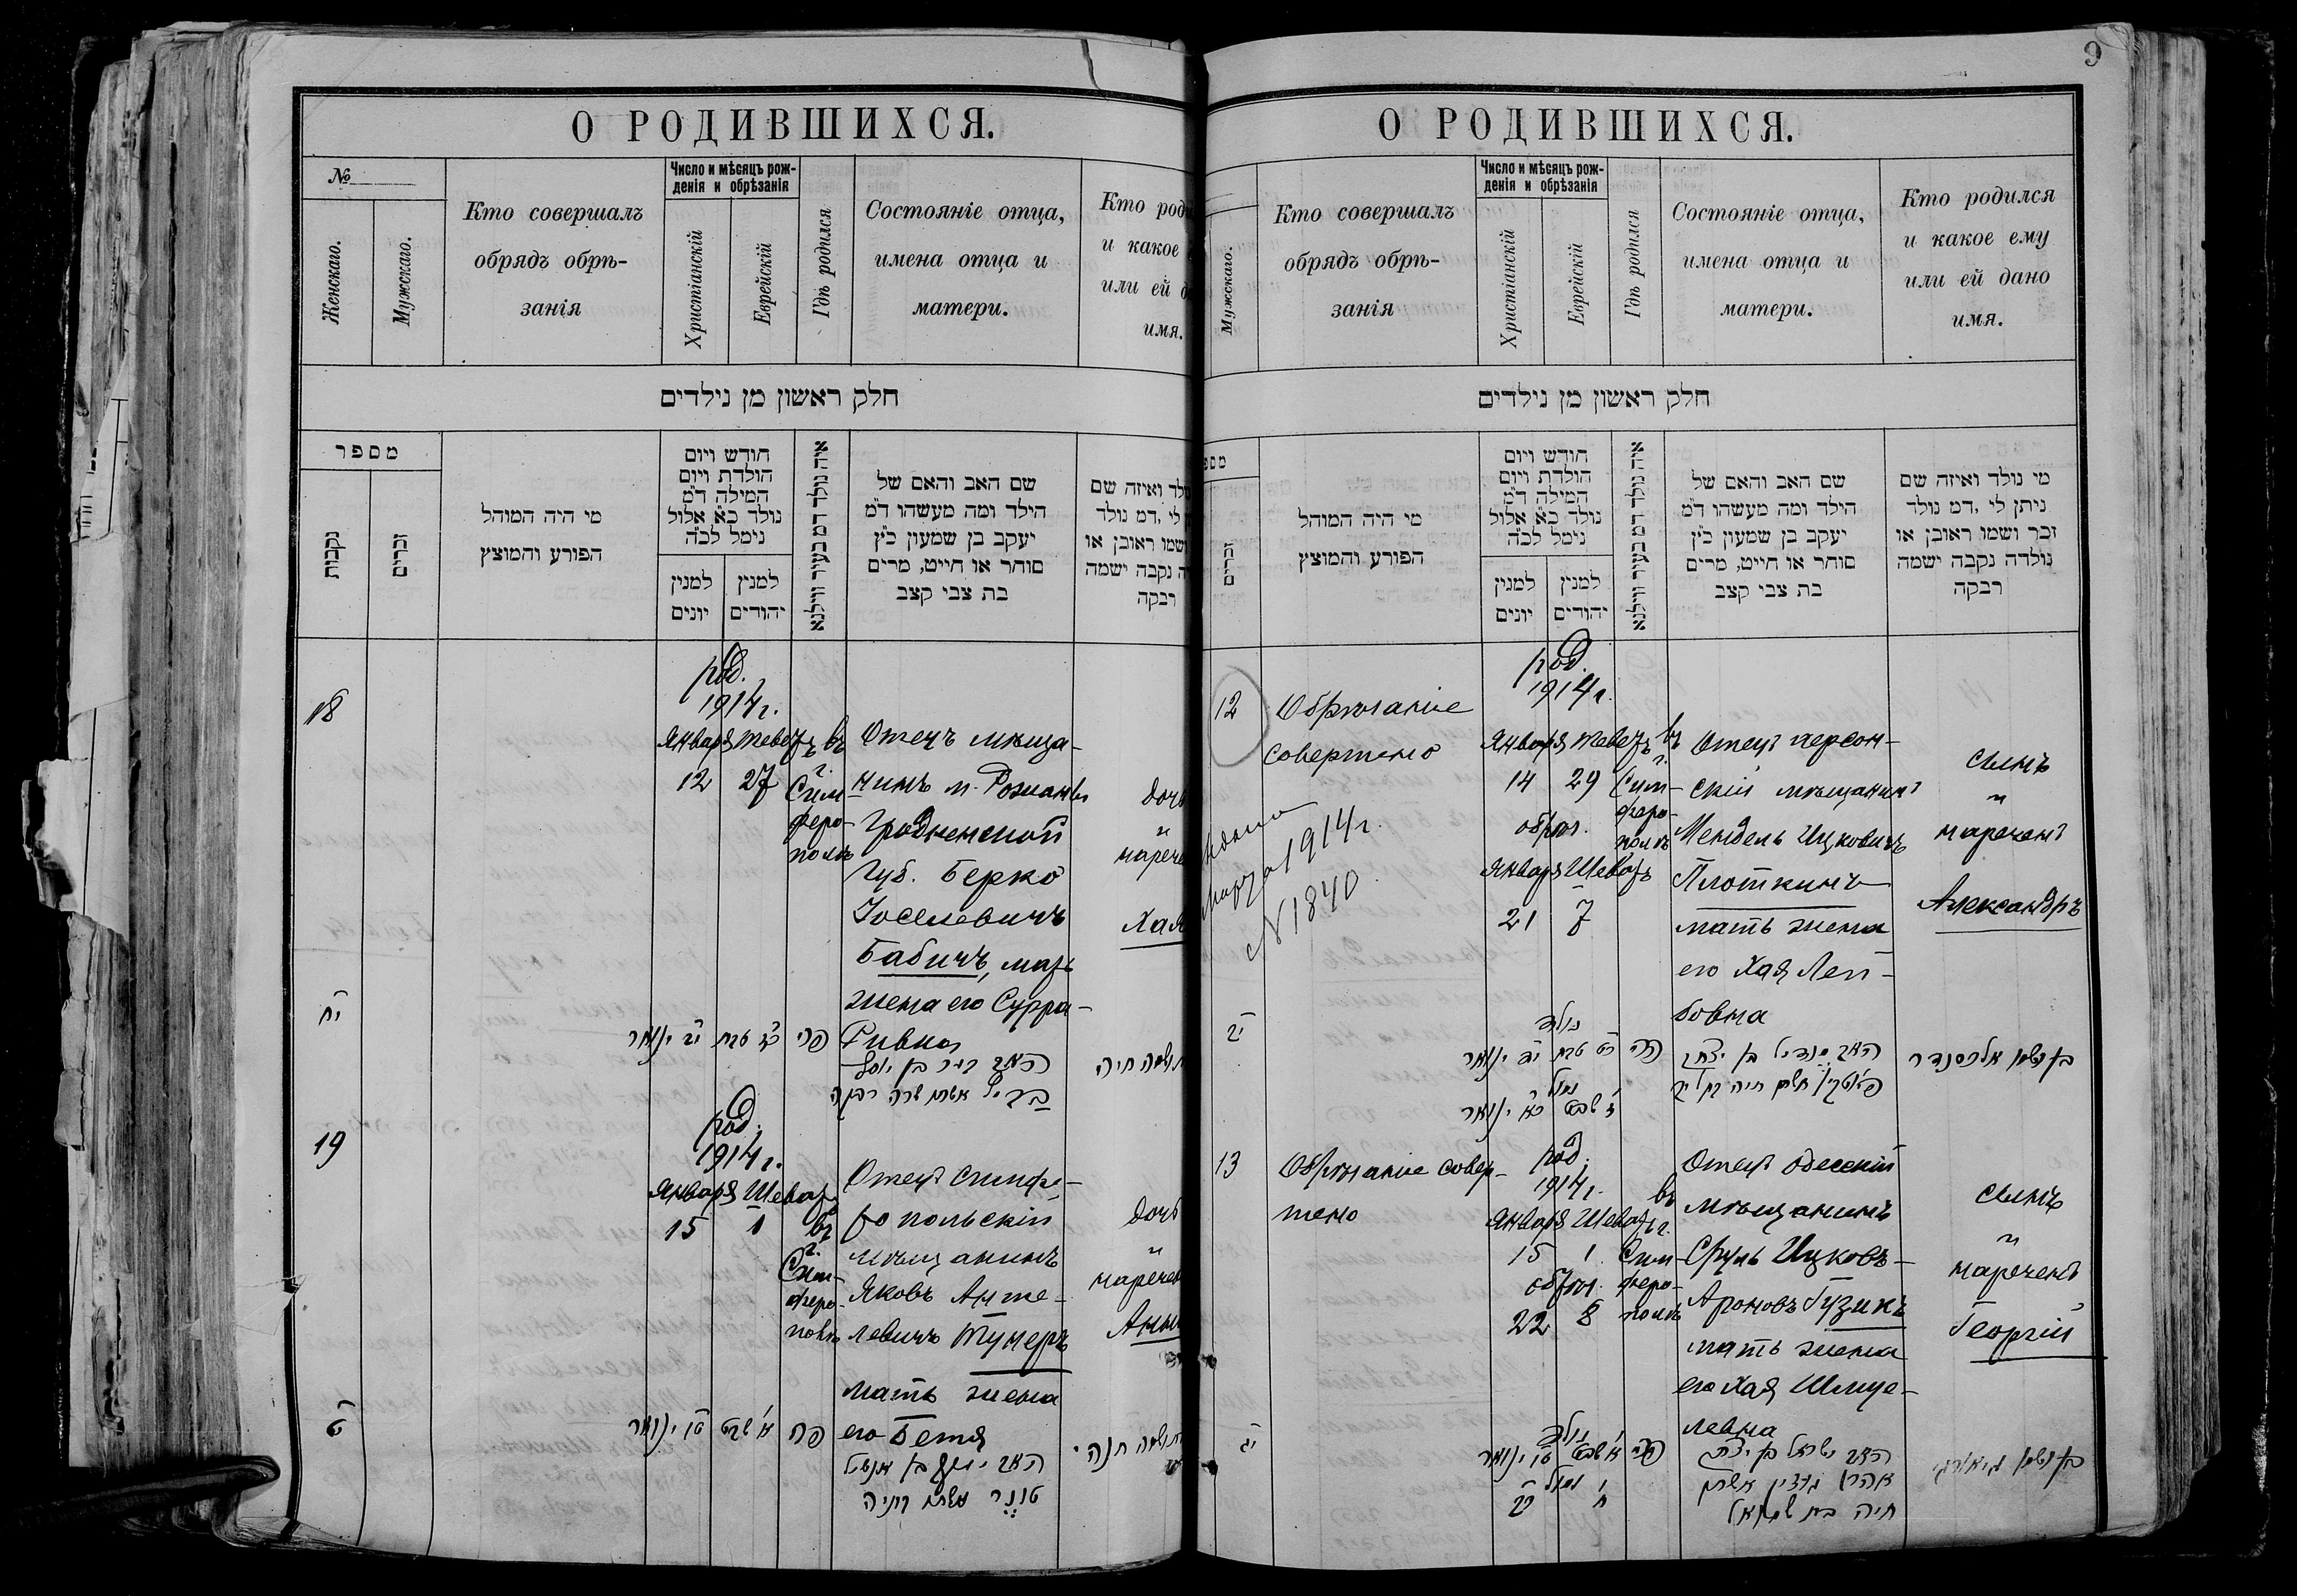 9
О РОДИВШИХСЯ.
№
Женскаго.
Мужскаго.
Кто совершалъ
обрядъ обрѣ-
занія
Число и мѣсяцъ рож-
денія и обрѣзанія
Христіанскій
Еврейскій
Гдѣ родился
Состояніе отца,
имена отца и
матери.
Кто род
и какое
или ей д
имя.
חלק ראשון מן נילדים
מספר
נקבות
זכרים
מי היה המוהל
הפורע והמוצץ
חודש ויום
הולדת ויום
המילה ד״מ
נולד כ״א אלול
נימל לכ״ה
למנין
יונים
למנין
יהודים
איה נולד דמ בעיר ווילנא
שם האב והאם של
הילד ומה מעשהו ד״מ
יעקב בן שמעון כ״ץ
סוחר או חייט, מרים
בת צבי קצב
ולד ואיזה שם
לי ,דמ נולד
ושמו ראובן או
ה נקבה ישמה
רבקה
18
род.
1914 г.
Января Теветъ
12 27
въ
г.
Сим-
феро-
полѣ
Отецъ мѣща-
нинъ м. Рожаны
Гродненской
Губ. Берко
Іоселевичъ
Бабичъ, мать
жена его Сурра-
Ривка
дочь
и
нарече
Хая
יח
19
род.
1914 г.
Января Шеватъ
15 1
въ
г.
Сим-
феро-
полѣ
Отецъ симфе-
ропольскій
мѣщанинъ
Яковъ Анше-
левичъ Тунеръ
мать жена
его Бетя
дочь
и
наречен
Анн
О РОДИВШИХСЯ.
Мужскаго.
Кто совершалъ
обрядъ обрѣ-
занія
Число и мѣсяцъ рож-
денія и обрѣзанія
Христіанскій
Еврейскій
Гдѣ родился
Состояніе отца,
имена отца и
матери.
Кто родился
и какое ему
или ей дано
имя.
חלק ראשון מן נילדים
מספ
זכרים
מי היה המוהל
הפורע והמוצץ
חודש ויום
הולדת ויום
המילה ד״מ
נולד כ״א אלול
נימל לכ״ה
למנין
יונים
למנין
יהודים
איה נולד דמ בעיר ווילנא
שם האב והאם של
הילד ומה מעשהו ד״מ
יעקב בן שמעון כ״ץ
סוחר או חייט, מרים
בת צבי קצב
מי נולד ואיזה שם
ניתן לי ,דמ נולד
זכר ושמו ראובן או
נולדה נקבה ישמה
רבקה
12
Обрѣзаніе
совершено
1914 г.
N 1840
род.
1914 г.
Января Теветъ
14 29
обрѣз.
Января Шеватъ
21 7
въ
г.
Сим-
феро-
полѣ
Отецъ херсон-
скій мѣщанинъ
Мендель Ицковичъ
Плоткинъ
мать жена
его Хая Лей-
бовна
сынъ
и
нареченъ
Александръ
יב
13
Обрѣзаніе совер-
шено
род.
1914 г.
Января Шеватъ
15 1
обрѣз.
22 8
въ
г.
Сим-
феро-
полѣ
Отецъ одесскій
мѣщанинъ
Сруль Ицковъ-
Ароновъ Гузикъ
мать жена
его Хая Шмуе-
левна
сынъ
и
нареченъ
Георгій
יג